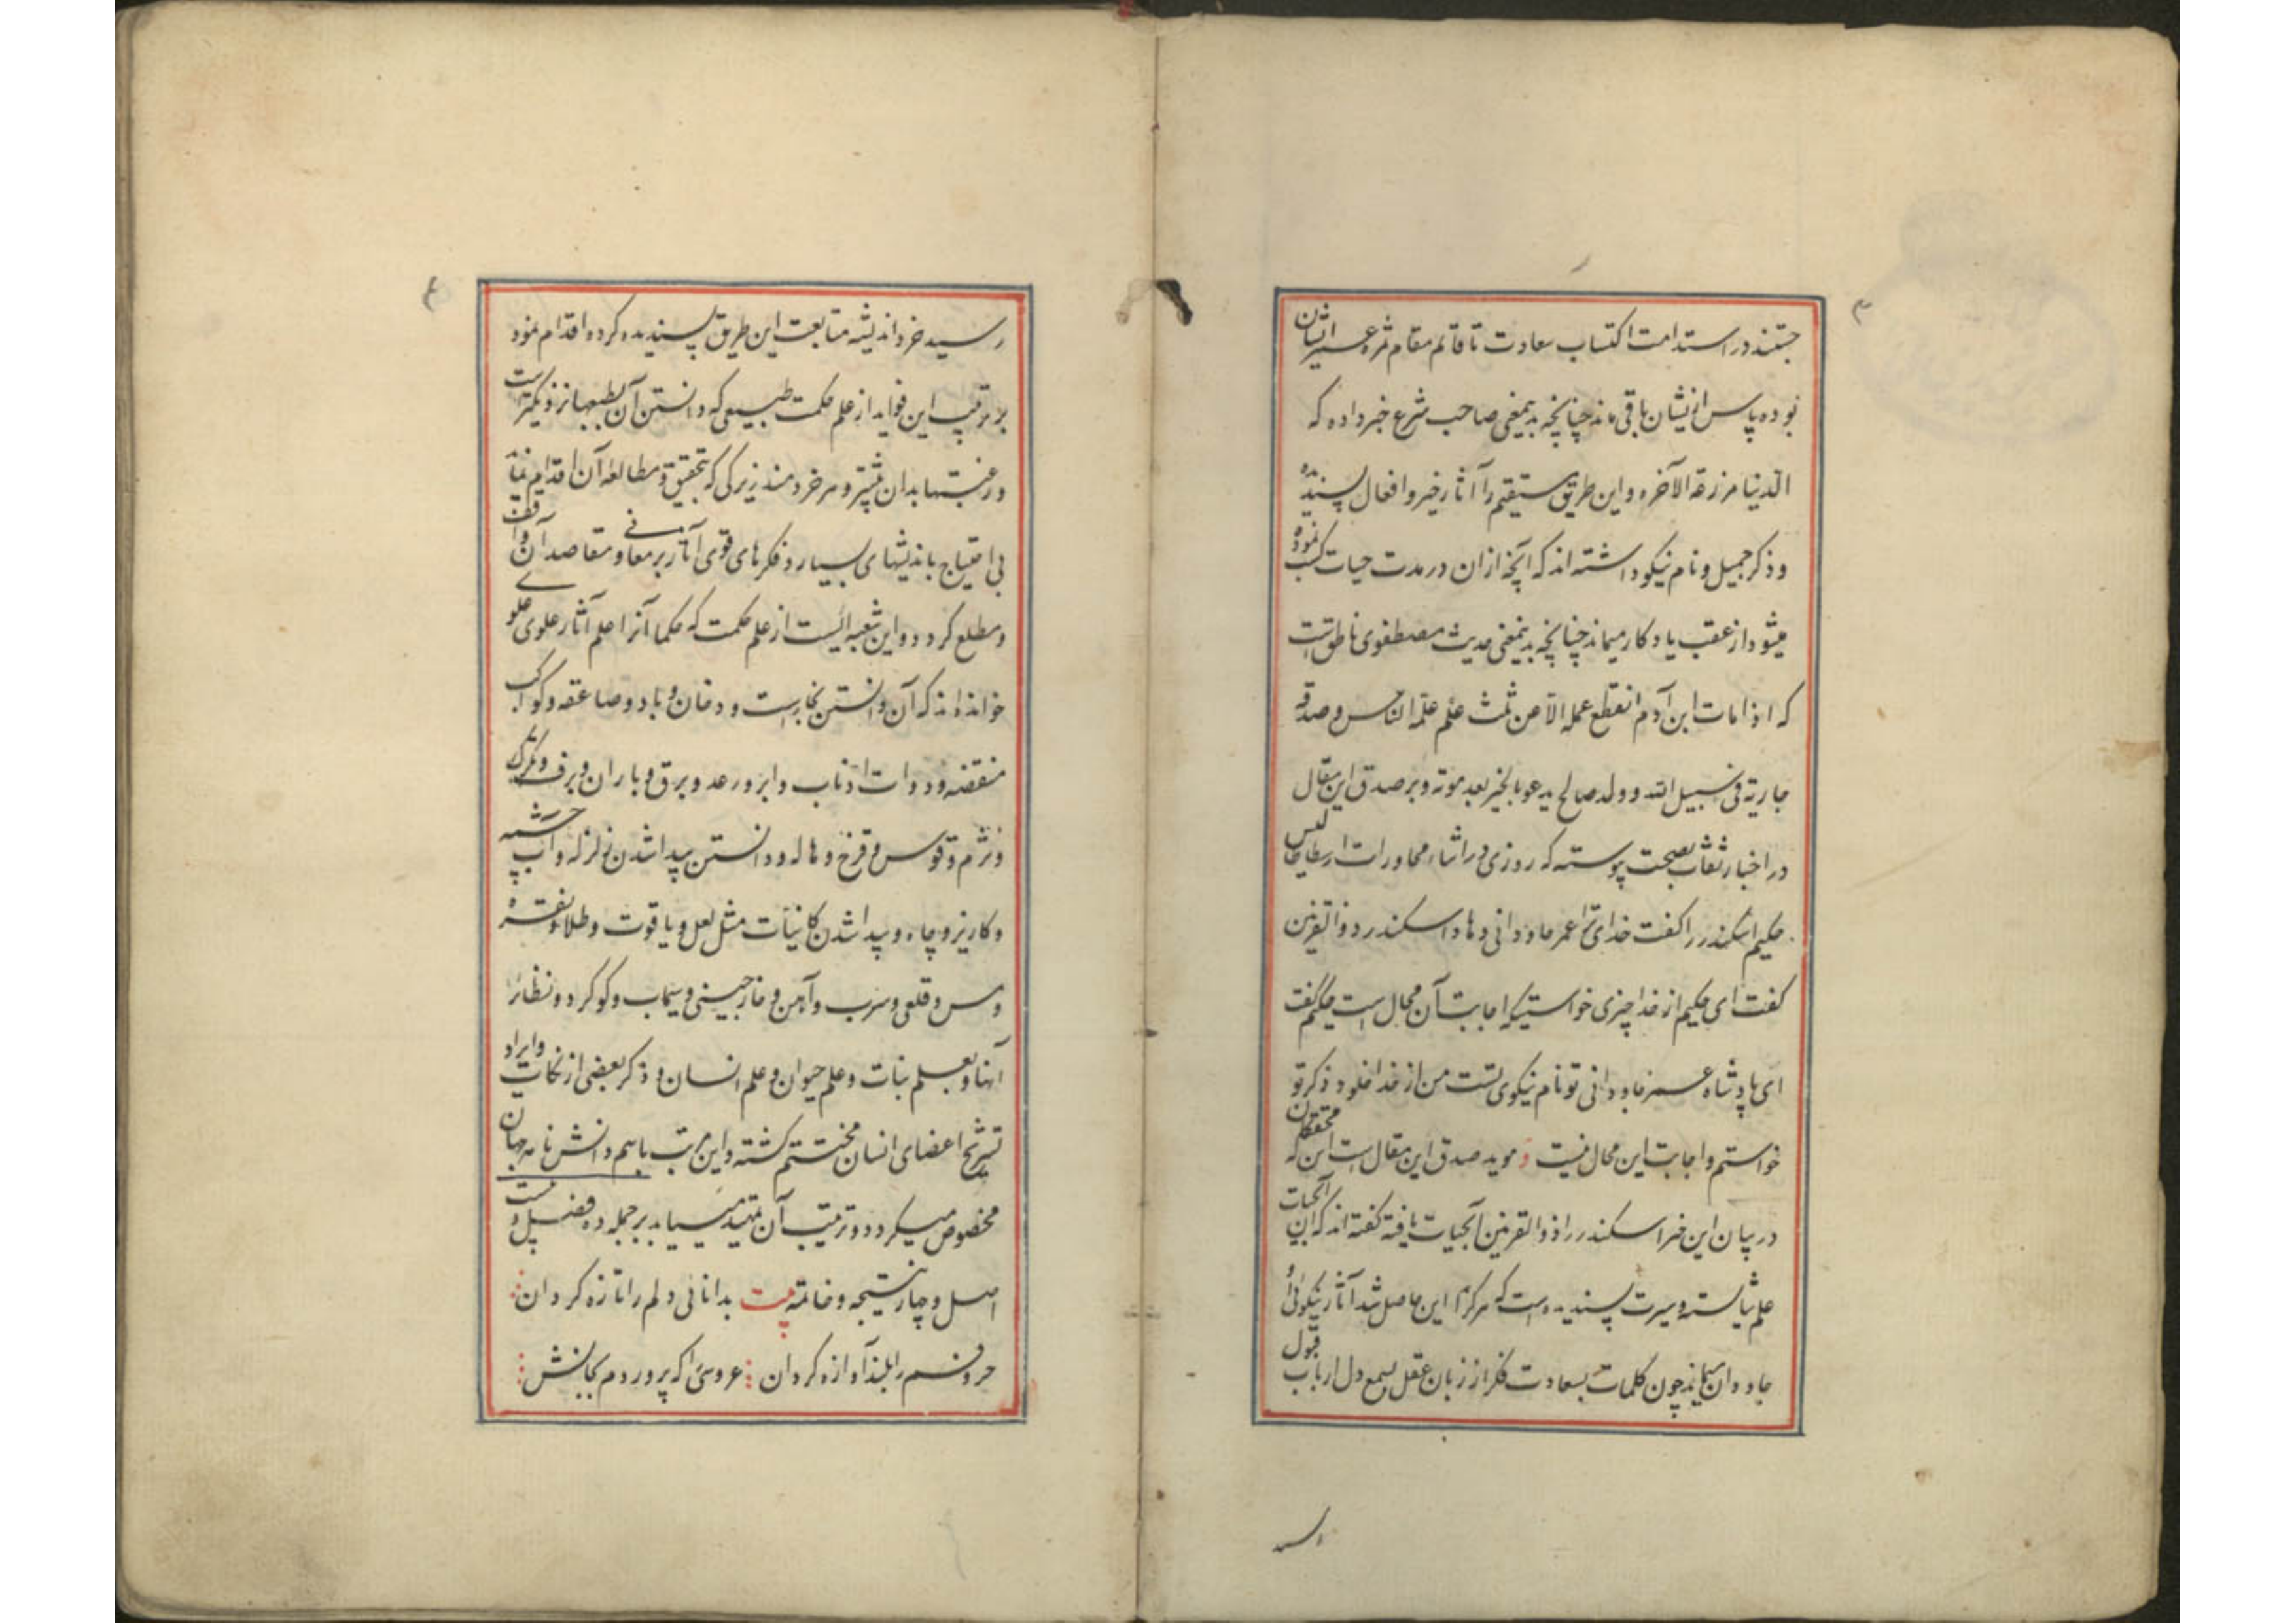 ۳
جستند در استدامت اکتساب سعادت تا قائم مقام ثمره عمر ایشان
بوده پاس ازیشان باقی ماند چنانچه بدینمعنی صاحب شرع خبر داده که
الدنیا مزرعة الآخره و این طریق مستقیم را آثار خیر و افعال پسندیده
و ذکر جمیل و نام نیکو داشته اند که آنچه ازان در مدت حیات کسب نموده
میشود از عقب یادکار میماند چنانچه بدینمعنی حدیث مصطفوی ناطق است
که اذا مات ابن آدم انقطع عمله الا من ثلث علم علمه الناس و صدقه
جاریة فی سبیل الله و ولد صالح یدعو بالخیر بعد موته و بر صدق این مقال
در اخبار ثقات بصحت پیوسته که روزی در اثناء محاورات ارسطاطالیس
حکیم اسکندر را کفت خدای ترا عمر جاودانی دهاد اسکندر ذوالقرنین
کفت ای حکیم از خدا چیزی خواستیکه اجابت آن محال است حکیم کفت
ای پادشاه عمر جاودانی تو نام نیکوی تست من از خدا خلود ذکر تو
خواستم و اجابت این محال نیست و موید صدق این مقال است این که محققان
در بیان این خبر اسکندر را ذوالقرنین آبحیات یافته کفته اند که این آبحیات
علم شایسته و سیرت پسندیده است که هرکرا این حاصل شد آثار نیکوئی او
جاودان میماند چون کلمات سعادت فکر از زبان عقل بسمع دل ارباب قبول
رسید
۴
رسید خرد اندیشه متابعت این طریق پسندیده کرده اقدام نمود
بر ترتیب این فواید از علم حکمت طبیعی که دانستن آن بطبعها نزدیکتر است
و رغبتها بدان بیشتر و هر خردمند زیرکی که بتحقیق و مطالعه آن اقدام نماید
بی احتیاج باندیشهای بسیار و فکرهای قوی آثار بر معانی و مقاصد آن واقف
و مطلع کردد و این شعبه ایست از علم حکمت که حکما آنرا علم آثار علوی
خوانده اند که آن دانستن بخارست و دخان و باد و صاعقه و کواکب
منقضه و ذوات اذناب و ابر و رعد و برق و باران و برف و تکرک
و نژم و قوس و قزح و هاله و دانستن پیدا شدن زلزله و آب چشمه
و کاریز و چاه و پیدا شدن کانیات مثل لعل و یاقوت و طلا و نقره
و مس و قلعی و سرب و آهن و خارچینی و سیماب و کوکرد و نظائر
آنها و بعلم نبات و علم حیوان و علم انسان و ذکر بعضی از نکات و ایراد
تشریح اعضای انسان مختتم کشته و این مرتب باسم دانش نامه جهان
مخصوص میکردد و ترتیب آن تمهید مییابد بر جمله ده فصل و بیست
اصل و چهار نتیجه و خاتمه بیت بدانائی دلم را تازه کردان
حروفم را بلند آوازه کردان عروسی را که پروردم بجانش